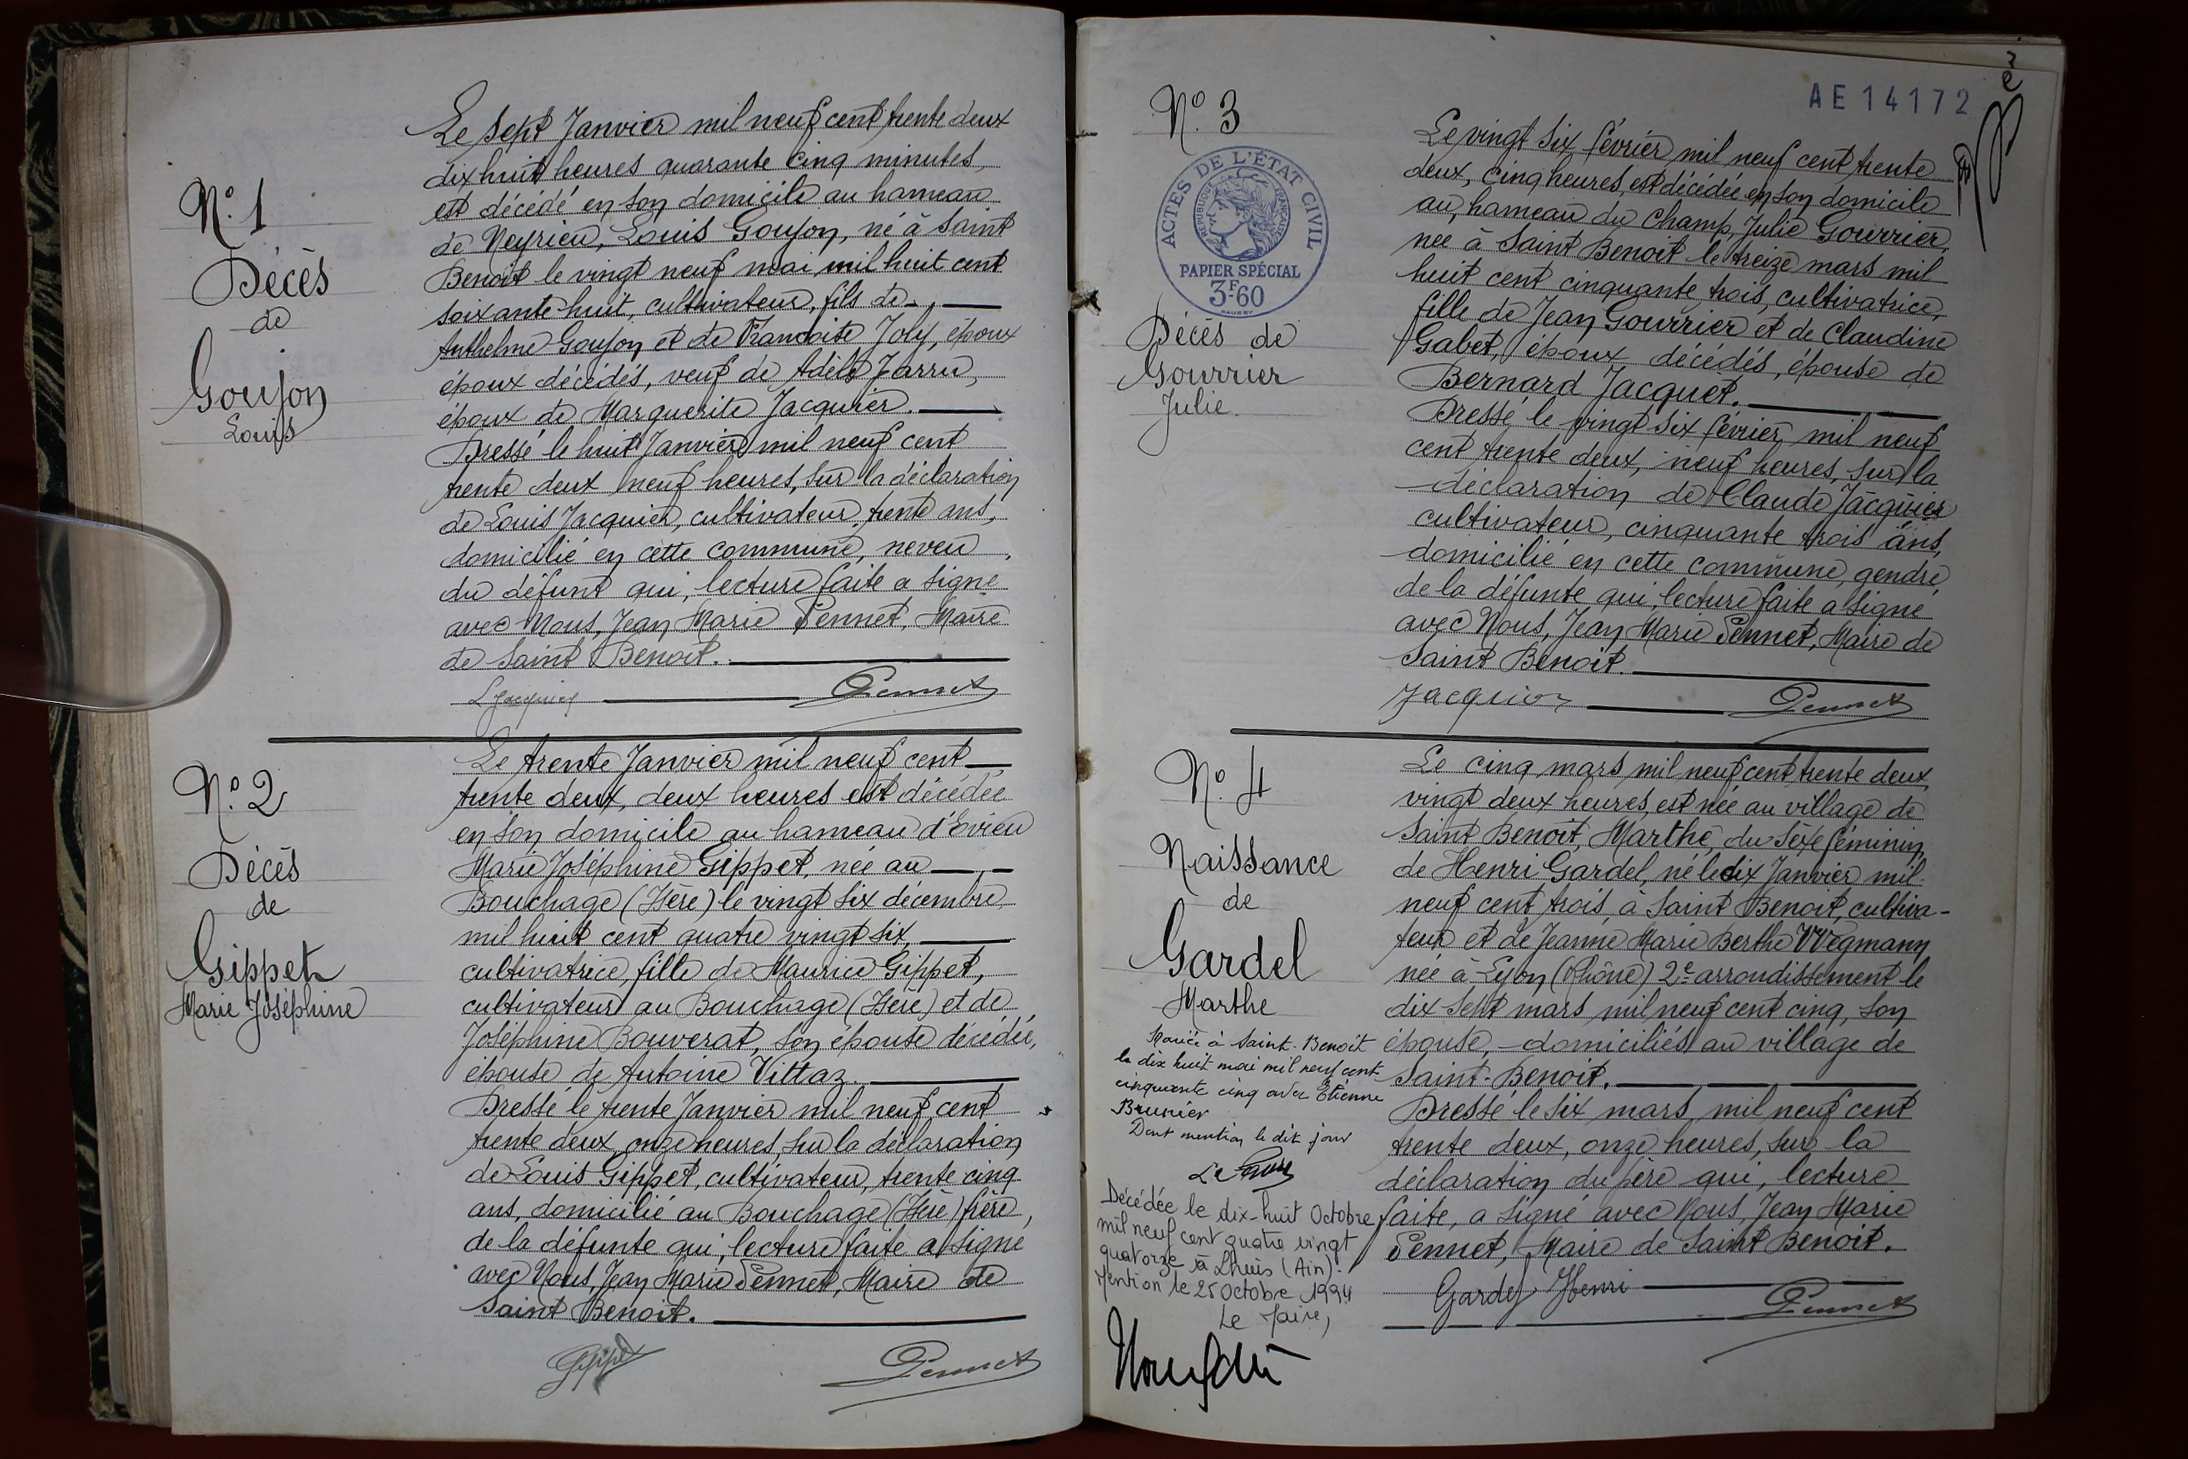 N° 1
Décès
de
Goujon
Louis
Le sept Janvier mil neuf cent trente deux
dix huit heures quarante cinq minutes,
est décédé en son domicile au hameau
de Neyrieu, Louis Goujon, né à Saint
Benoit le vingt neuf mai mil huit cent
soixante-huit, cultivateur, fils de
Anthelme Goujon et de Francoise Joly, époux
époux décédés, veuf de Adèle Jarru,
époux de Marguerite Jacquier.
Dressé le huit Janvier mil neuf cent
trente deux neuf heures, sur la déclaration
de Louis Jacquier, cultivateur, trente ans,
domicilié en cette commune, neveu
du défunt qui, lecture faite a signé
avec Nous, Jean Marie Pennet, Maire
de Saint Benoit.
L Jacquier Pennet
N° 2
Décès
de
Gippet
Marie Joséphine
Le trente Janvier mil neuf cent
trente deux, deux heures est décédée
en son domicile au hameau d'Evieu
Marie Joséphine Gippet, née au
Bouchage (Isère) le vingt six décembre
mil huit cent quatre vingt six,
cultivatrice, fille de Maurice Gippet,
cultivateur au Bouchage (Isère) et de
Joséphine Bouverat, son épouse décédée,
épouse de Antoine Vittaz.
Dressé le trente Janvier mil neuf cent
trente deux, onze heures, sur la déclaration
de Louis Gippet, cultivateur, trente cinq
ans, domicilié au Bouchage (Isère) frère
de la défunte qui, lecture faite a signé
avec Nous, Jean Marie Pennet, Maire de
Saint Benoit.
Gippet Pennet
AE 14172
N° 3
ACTES DE L'ÉTAT CIVIL
RÉPUBLIQUE FRANÇAISE
PAPIER SPÉCIAL
3F-60
Décès de
Gourrier
Julie
Le vingt six février mil neuf cent trente
deux, cinq heures, est décédée en son domicile
au hameau du Champ, Julie Gourrier,
née à Saint Benoit le treize mars mil
huit cent cinquante trois, cultivatrice,
fille de Jean Gourrier et de Claudine
Gabet, époux décédés, épouse de
Bernard Jacquet.
Dressé le vingt six février mil neuf
cent trente deux, neuf heures, sur la
déclaration de Claude Jacquier
cultivateur, cinquante trois ans,
domicilié en cette commune, gendre
de la défunte qui, lecture faite a signé
avec Nous, Jean Marie Pennet, Maire de
Saint Benoit.
Jacquier Pennet
N° 4
Naissance
de
Gardel
Marthe
Mariée à Saint-Benoît
le dix huit mai mil neuf cent
cinquante cinq avec Etienne
Brunier
Dont mention le dit jour
Le Maire
Décédée le dix-huit Octobre
mil neuf cent quatre vingt
quatorze à Lhuis (Ain).
Mention le 25 Octobre 1994
Le Maire,
Le cinq mars mil neuf cent trente deux,
vingt deux heures, est née au village de
Saint Benoit, Marthe, du sexe féminin,
de Henri Gardel, né le dix Janvier mil
neuf cent trois, à Saint Benoit, cultiva-
teur et de Jeanne Marie Berthe Wegmann
née à Lyon (Rhône) 2e arrondissement le
dix sept mars mil neuf cent cinq, son
épouse, - domiciliés au village de
Saint-Benoit.
Dressé le six mars mil neuf cent
trente deux, onze heures, sur la
déclaration du père qui, lecture
faite, a signé avec Nous, Jean Marie
Pennet, Maire de Saint Benoit.
Gardel Henri Pennet